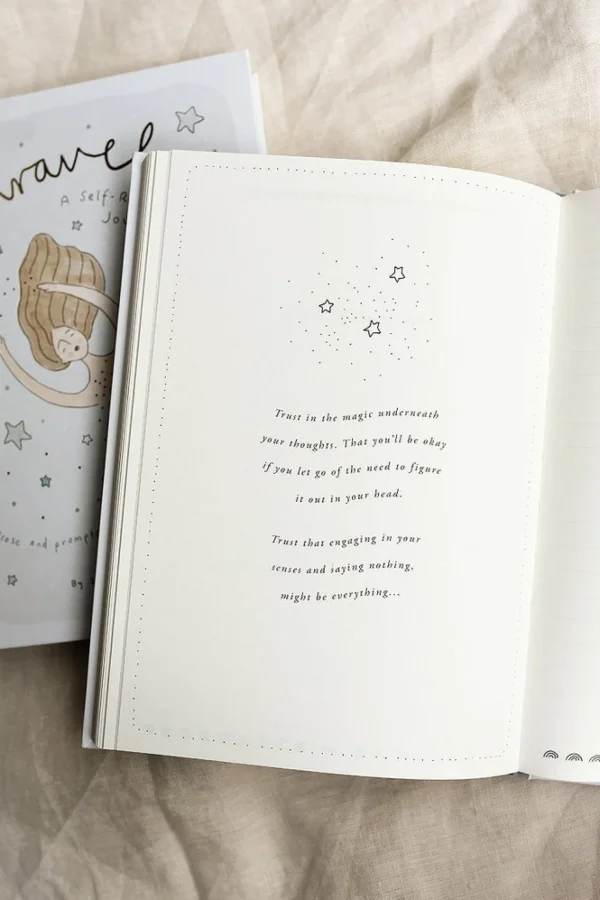 A Self-R
Trust in the magic underneath
your thoughts. That you'll be okay
if you let go of the need to figure
it out in your head.
Trust that engaging in your
senses and saying nothing,
might be everything...
ravel
Jo
ose and prompt
By